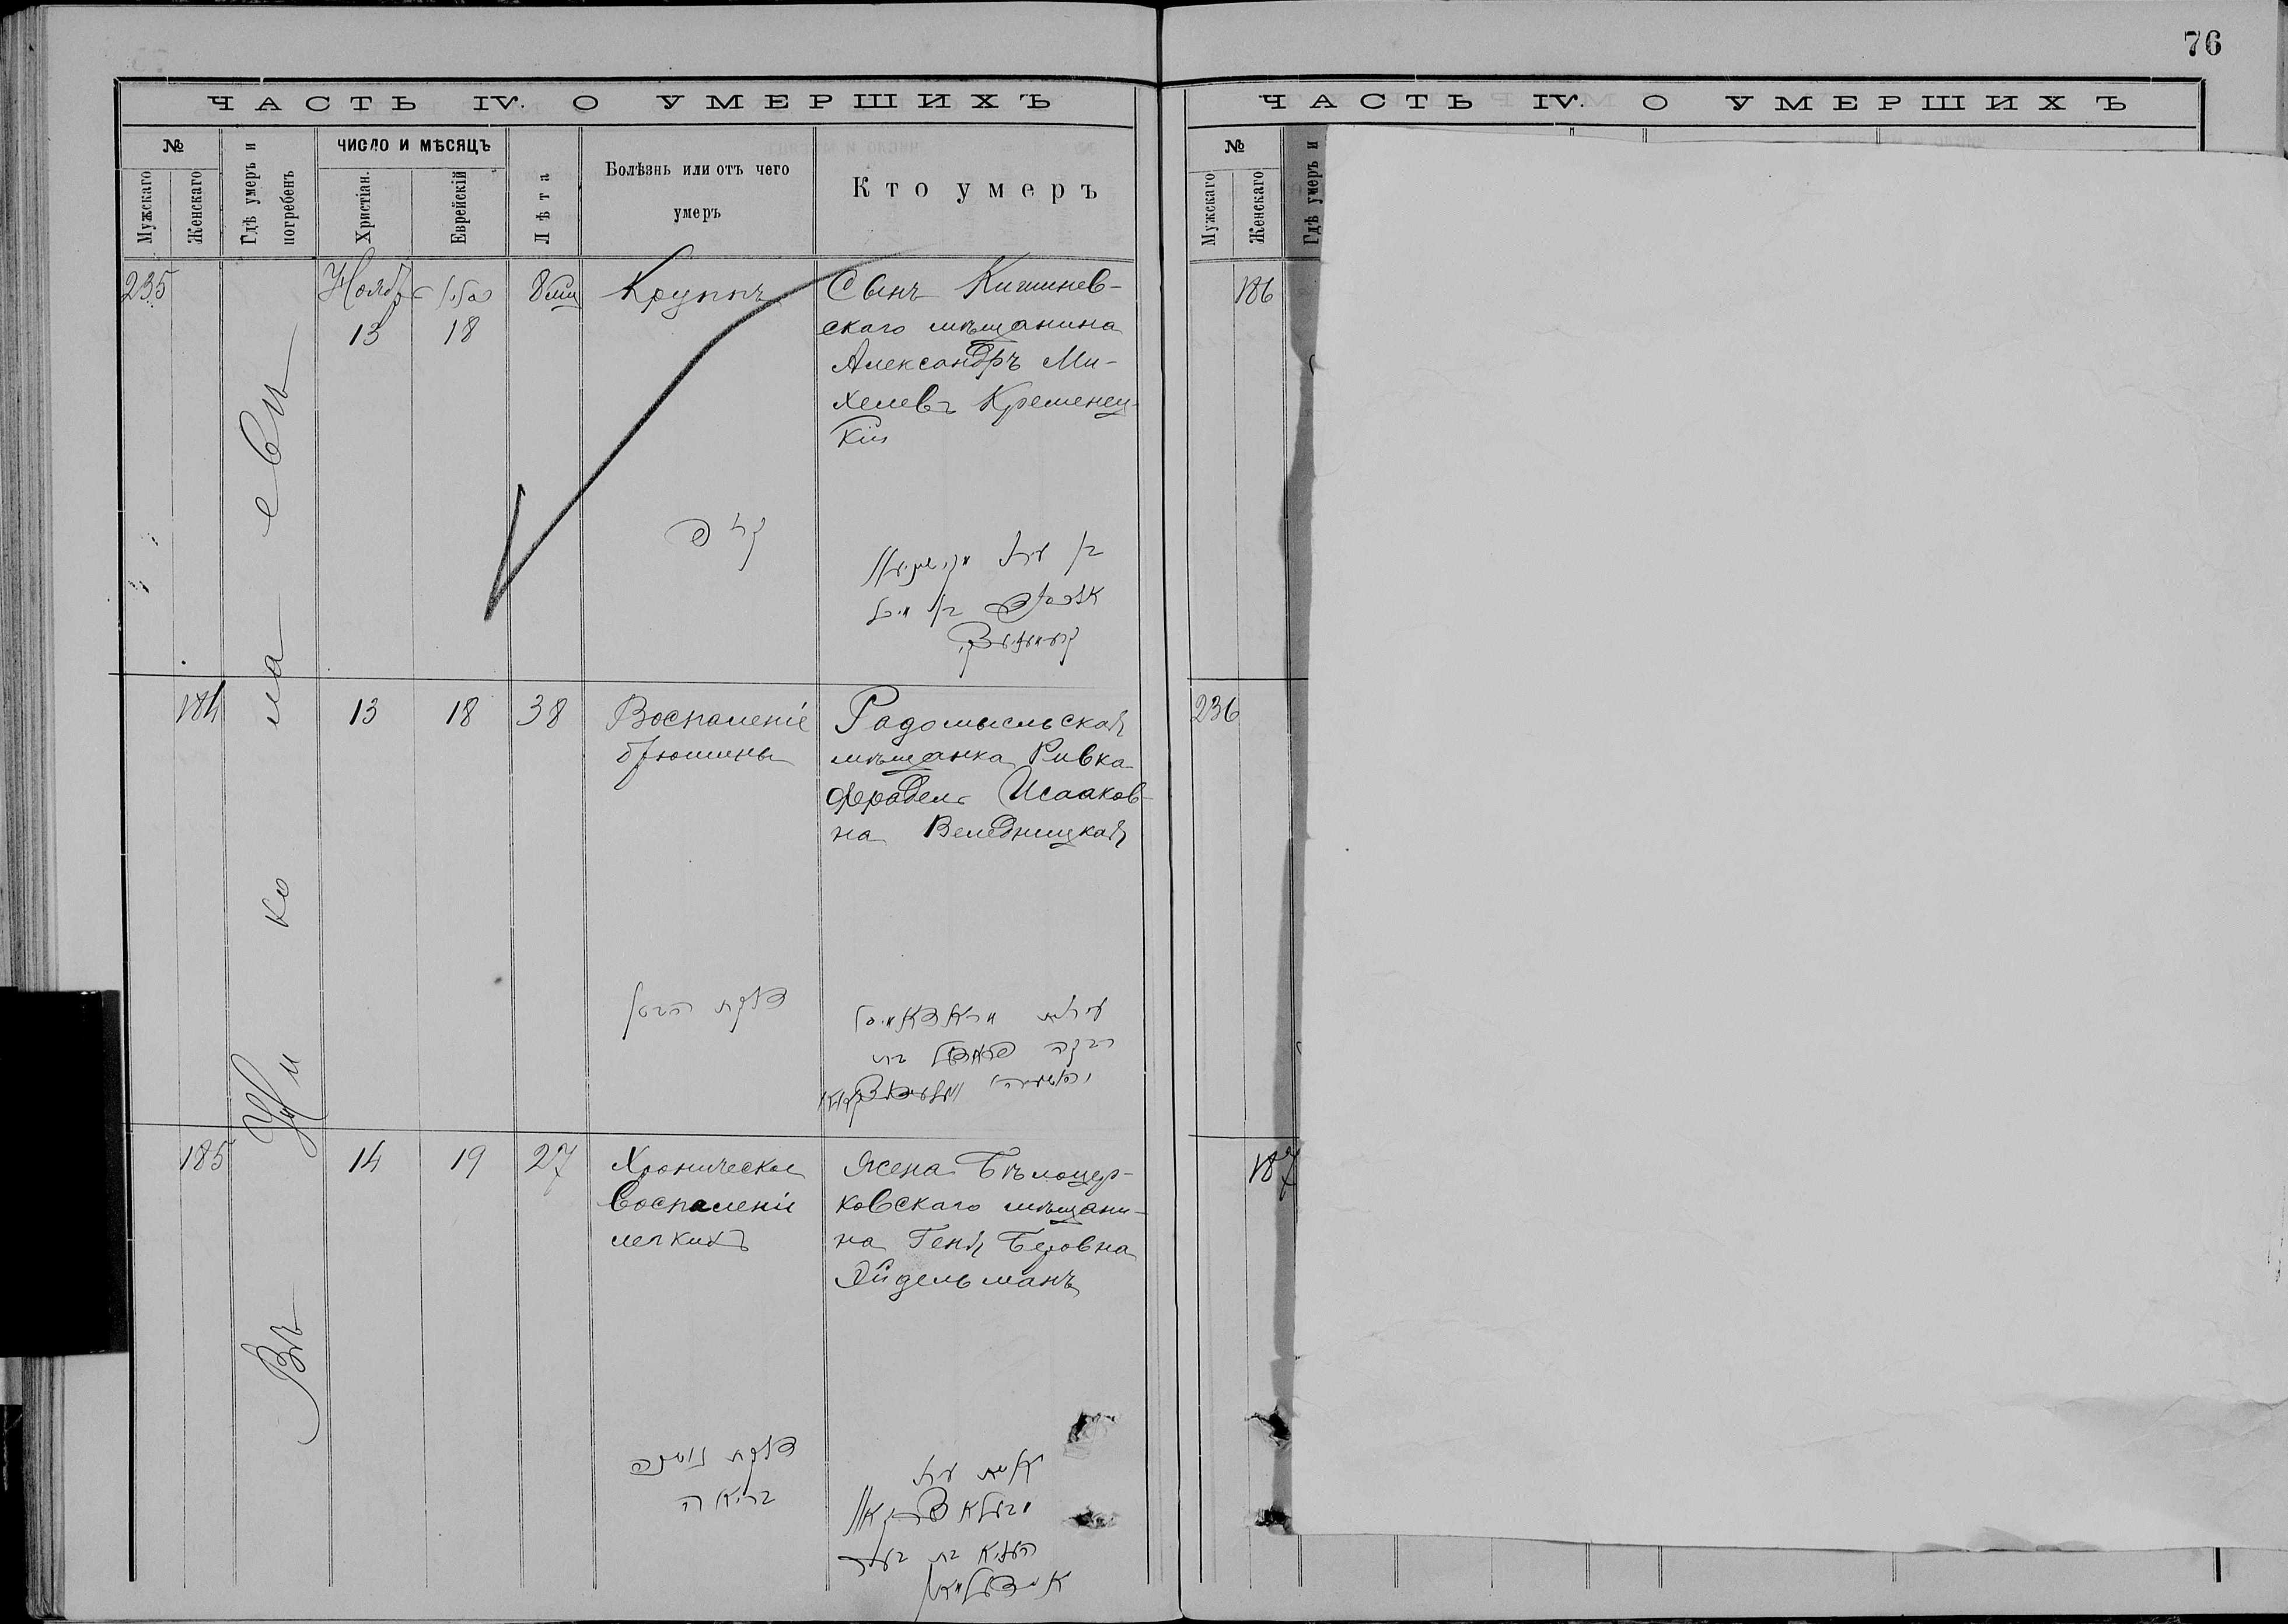 76
ЧАСТЬ IV. О УМЕРШИХЪ
№
Мужскаго
Женскаго
Гдѣ умеръ и погребенъ
ЧИСЛО И МѢСЯЦЪ
Христіан.
Еврейскій
Лѣта
Болѣзнь или отъ чего
умеръ
Кто умеръ
Въ Николаевѣ
235
Ноябр
13
18
Крупъ
Сынъ Кишинев-
скаго мѣщанина
Александръ Ми-
хелевъ Кременец-
кій
184
13
18
38
Воспаленіе
брюшины
Радомысльская
мѣщанка Ривка
Исааков-
на Веледницкая
דלקת
רבקה
בת
185
14
19
27
Хроническое
воспаленіе
легкихъ
Жена Бѣлоцер-
ковскаго мѣщани-
на Геня Беровна
Эйдельманъ
דלקת נושנה
הריאה
אשת
בת
ЧАСТЬ IV. О УМЕРШИХЪ
№
Мужскаго
Женскаго
Гдѣ умеръ и
186
236
187